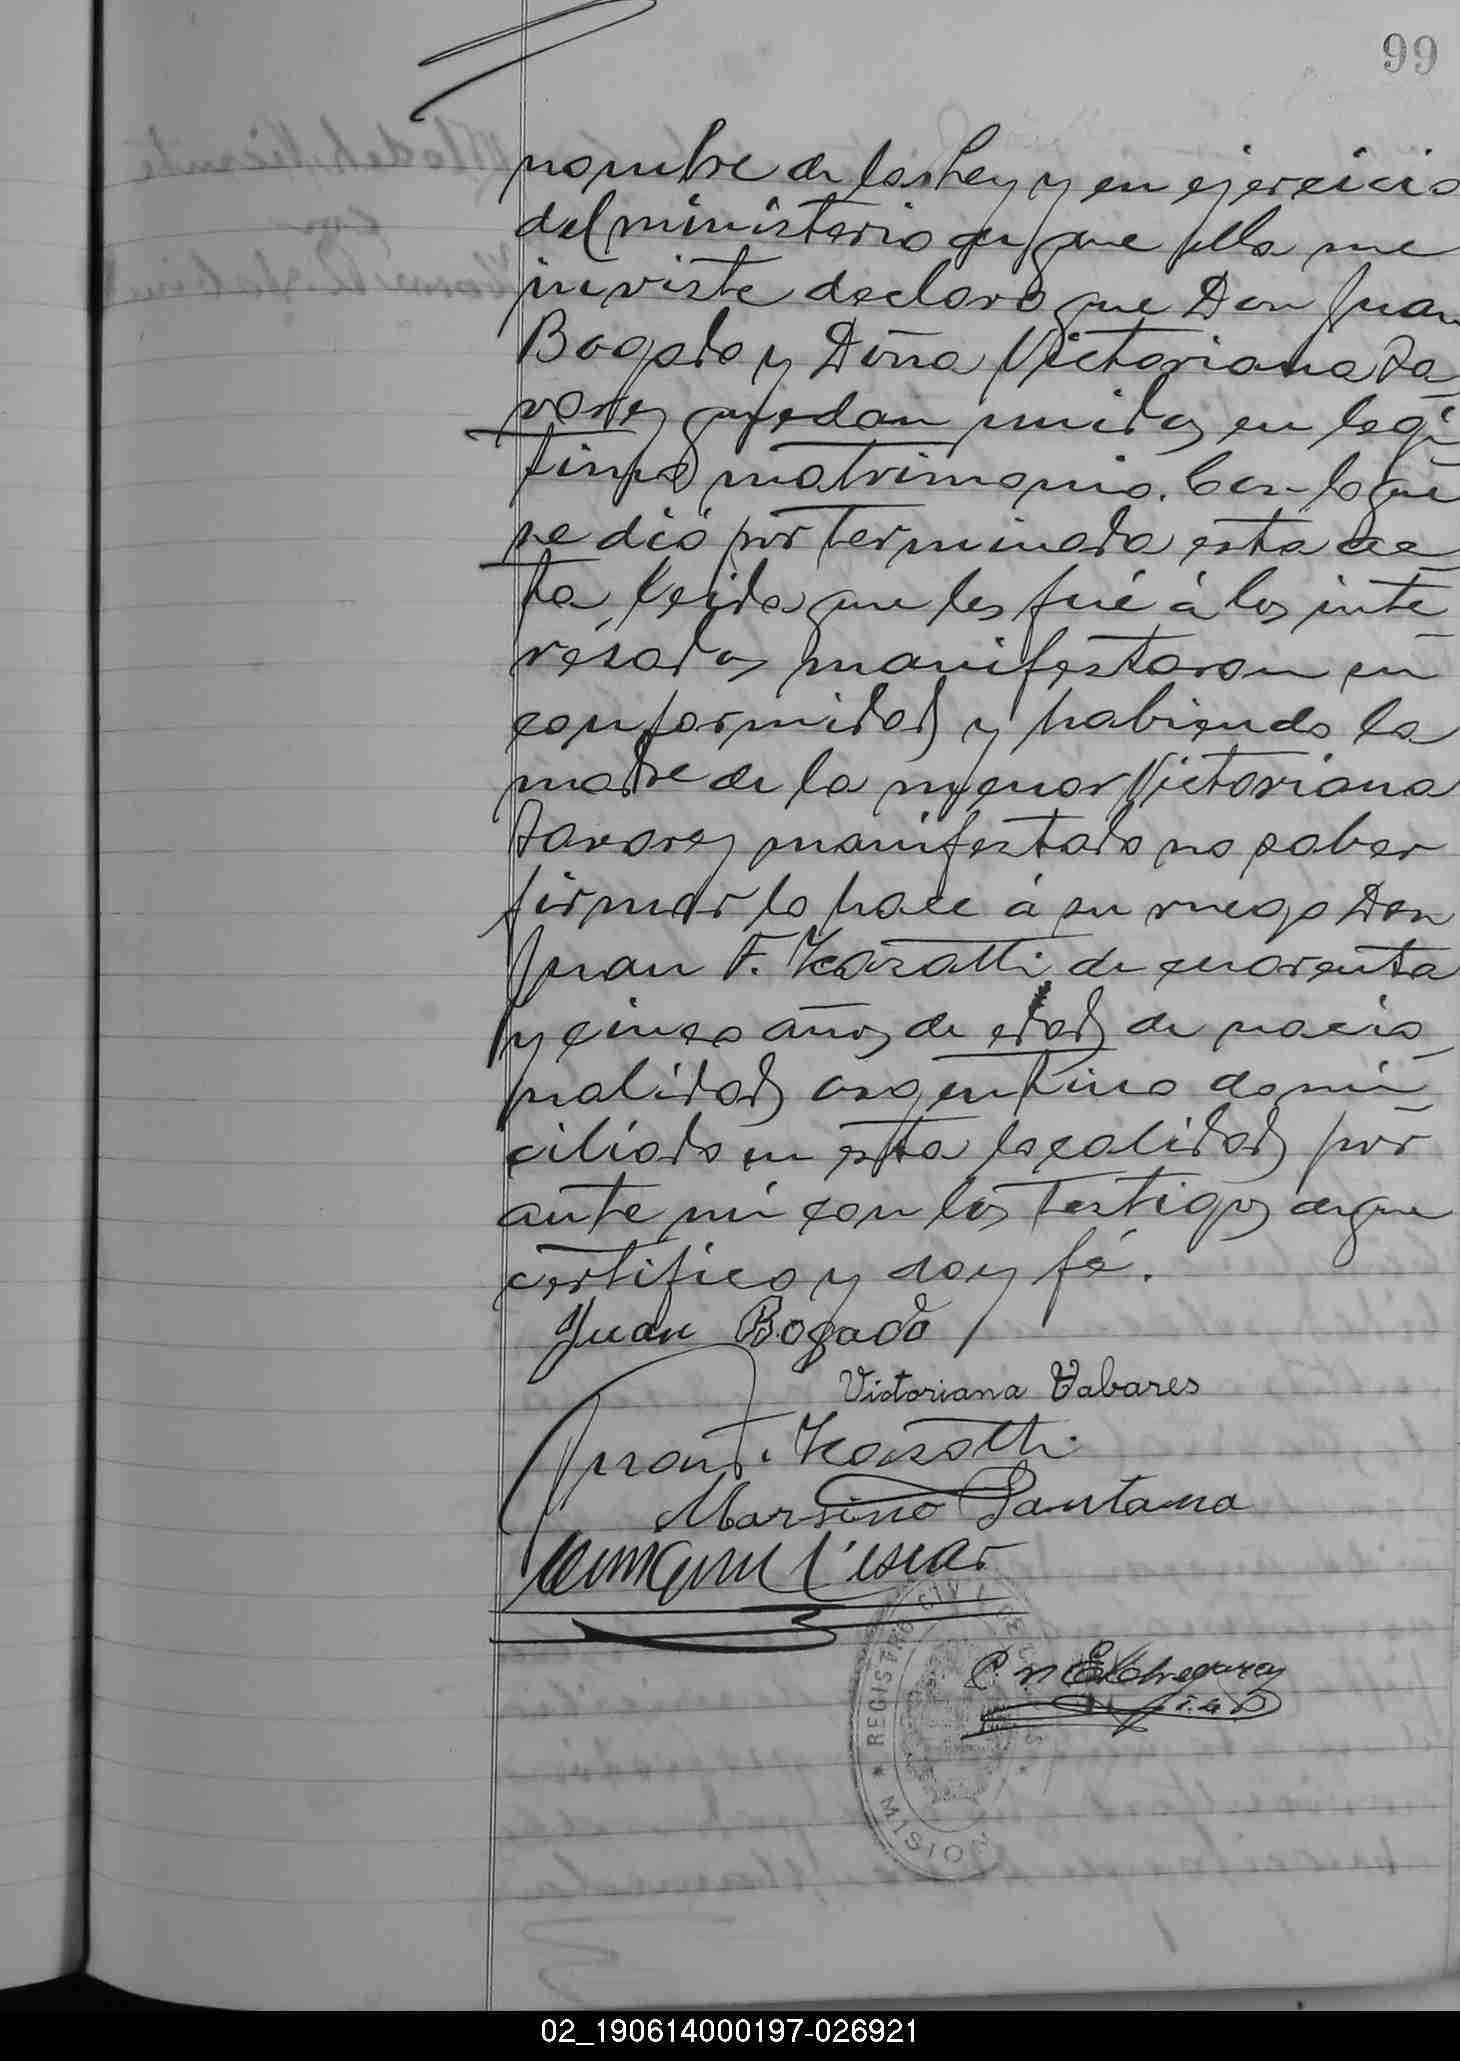 99
nombre de la Ley y en ejercicio
del ministerio de que ella me
inviste declaro que Don Juan
Bogado y Doña Victoriana Ta
varez quedan unidos en legí
timo matrimonio. Con lo que
se dió por terminada esta ac
ta leida que les fué á los inte
resados manifestaron su
conformidad y habiendo la
madre de la menor Victoriana
Tavarez manifestado no saber
firmar lo hace á su ruego Don
Juan F. de cuarenta
y cinco años de edad de nacio
nalidad argentino domi
ciliado en esta localidad por
ante mi con los testigos de que
certifico y doy fé.
Juan Bogado
Victoriana Tabares
Juan F.
Marsino Santana
REGISTRO CIVIL DE
MISION
Etchegaray
02_190614000197-026921